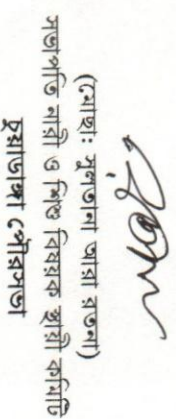 (মোছা: সুলতানা আরা রত্না)
সভাপতি নারী ও শিশু বিষয়ক স্থায়ী কমিটি
চুয়াডাঙ্গা পৌরসভা